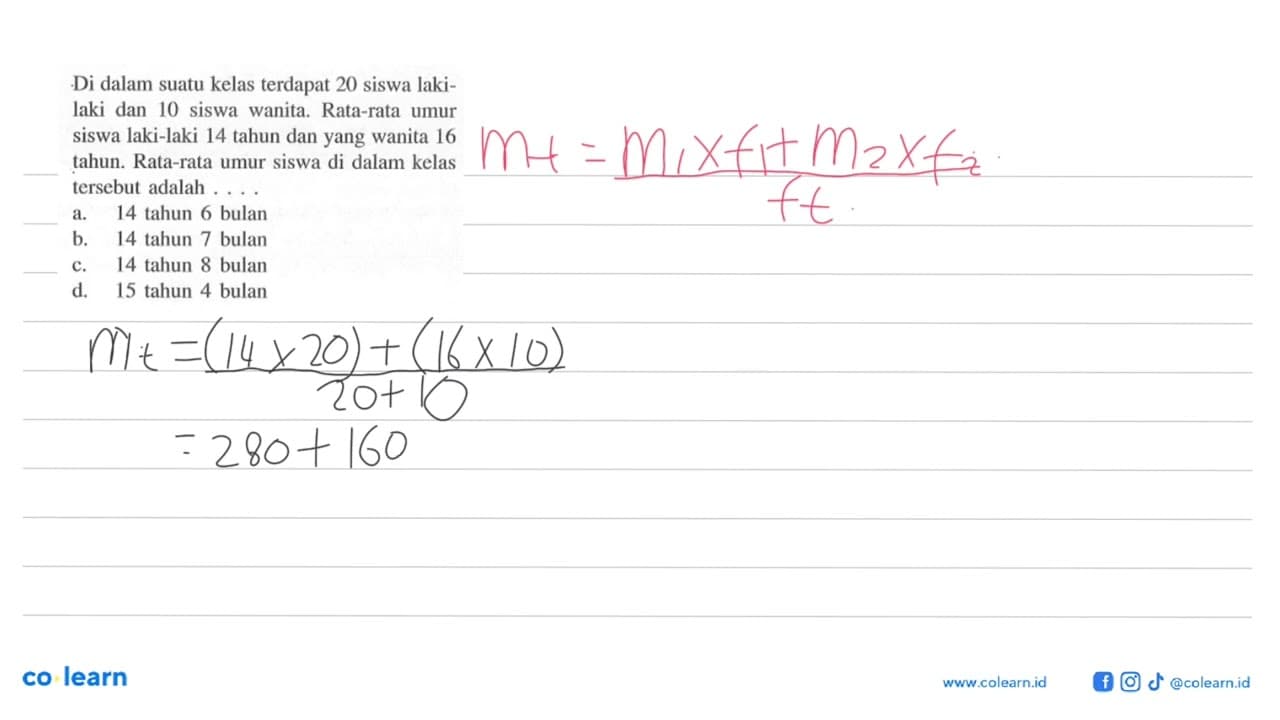 Di dalam suatu kelas terdapat 20 siswa laki-
laki dan 10 siswa wanita. Rata-rata umur
siswa laki-laki 14 tahun dan yang wanita 16
tahun. Rata-rata umur siswa di dalam kelas
tersebut adalah . . . .
a. 14 tahun 6 bulan
b. 14 tahun 7 bulan
c. 14 tahun 8 bulan
d. 15 tahun 4 bulan
mt = m1 x f1 + m2 x f2
ft
mt = (14 x 20) + (16 x 10)
20 + 10
= 280 + 160
co learn
www.colearn.id
@colearn.id